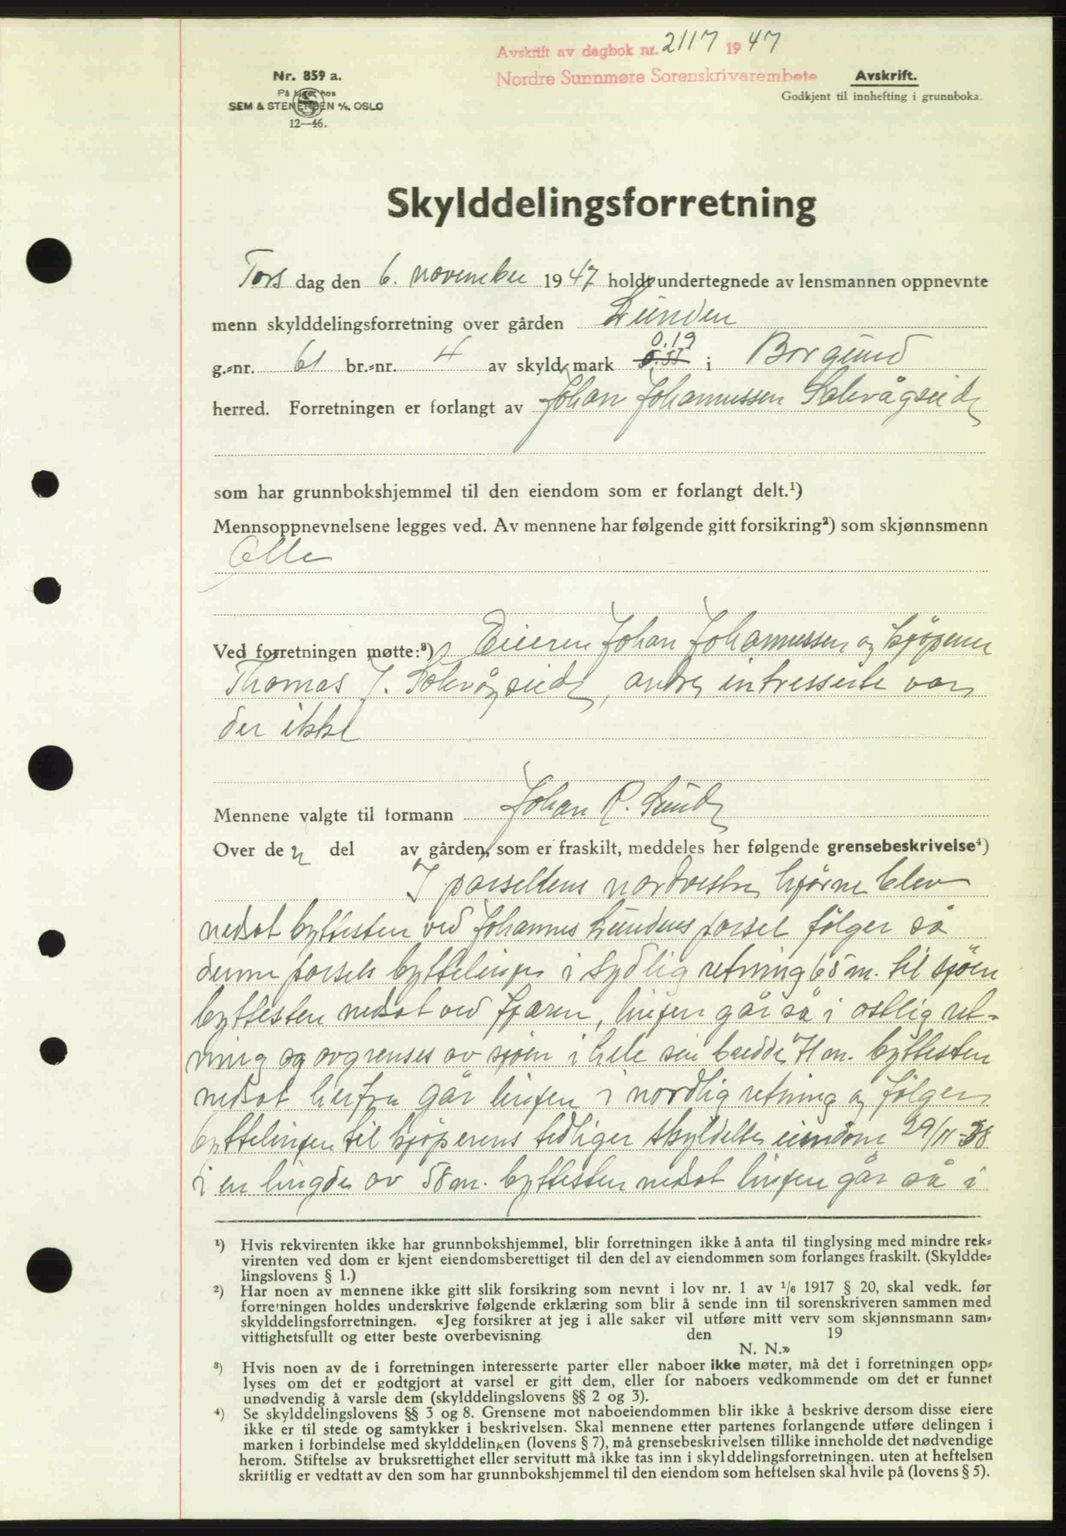 Avskrift av dagbok nr. 2117 1947
Nordre Sunnmøre Sorenskrivarembete
Avskrift.
Godkjent til innhefting i grunnboka.
Nr. 859 a.
På lager hos
SEM & STENERSEN A/S, OSLO
12—46.
Skylddelingsforretning
Tors dag den 6. november 1947 holdt undertegnede av lensmannen oppnevnte
menn skylddelingsforretning over gården Lunden
0.19
g.-nr. 61 br.-nr. 4 av skyld mark i Borgund
herred. Forretningen er forlangt av Johan Johannessen Solevågseide
som har grunnbokshjemmel til den eiendom som er forlangt delt.¹)
Mennsoppnevnelsene legges ved. Av mennene har følgende gitt forsikring²) som skjønnsmenn
Alle
Ved forretningen møtte:³) Eieren Johan Johannessen og kjøperen
Thomas J. Solevågseide, andre intresserte var
der ikke
Mennene valgte til formann Johan R. Lunde
Over de n del av gården, som er fraskilt, meddeles her følgende grensebeskrivelse⁴)
I parsellens nordvestre hjørne blev
nedsat byttesten ved Johannes Lundens parsel følger så
denne parsels byttelinjer i sydlig retning 65 m. til sjøen
byttesten nedsat ved fjæren, linjen går så i østlig ret-
ning og avgrenses av sjøen i hele sin bredde 71 m. byttesten
nedsat herfra går linjen i nordlig retning og følger
byttelinjen til kjøperens tidliger skyldelte eiendom 29/11-38
i en lengde av 58 m. byttesten nedsat linjen går så i
¹) Hvis rekvirenten ikke har grunnbokshjemmel, blir forretningen ikke å anta til tinglysing med mindre rek-
virenten ved dom er kjent eiendomsberettiget til den del av eiendommen som forlanges fraskilt. (Skyldde-
lingslovens § 1.)
²) Har noen av mennene ikke gitt slik forsikring som nevnt i lov nr. 1 av 1/6 1917 § 20, skal vedk. før
forretningen holdes underskrive følgende erklæring som blir å sende inn til sorenskriveren sammen med
skylddelingsforretningen. «Jeg forsikrer at jeg i alle saker vil utføre mitt verv som skjønnsmann sam-
vittighetsfullt og etter beste overbevisning den 19
N. N.»
³) Hvis noen av de i forretningen interesserte parter eller naboer ikke møter, må det i forretningen opp-
lyses om det er godtgjort at varsel er gitt dem, eller for naboers vedkommende om det er funnet
unødvendig å varsle dem (skylddelingslovens §§ 2 og 3).
⁴) Se skylddelingslovens §§ 3 og 8. Grensene mot naboeiendommen blir ikke å beskrive dersom disse eiere
ikke er til stede og samtykker i beskrivelsen. Skal mennene etter partenes forlangende utføre delingen i
marken i forbindelse med skylddelingen (lovens § 7), må grensebeskrivelsen tillike inneholde det nødvendige
herom. Stiftelse av bruksrettighet eller servitutt må ikke tas inn i skylddelingsforretningen. uten at heftelsen
skriftlig er vedtatt av den som har grunnbokshjemmel til den eiendom som heftelsen skal hvile på (lovens § 5).